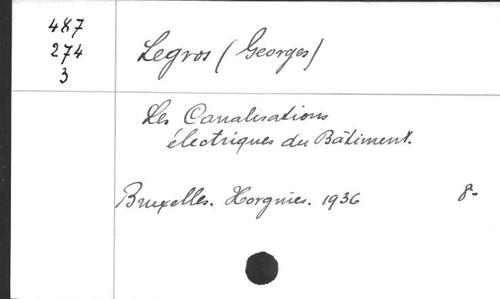 487
274
3
Legros (Georges)
Les Canalisations
électriques du Bâtiment.
Bruxelles. Horgnies. 1936 8-